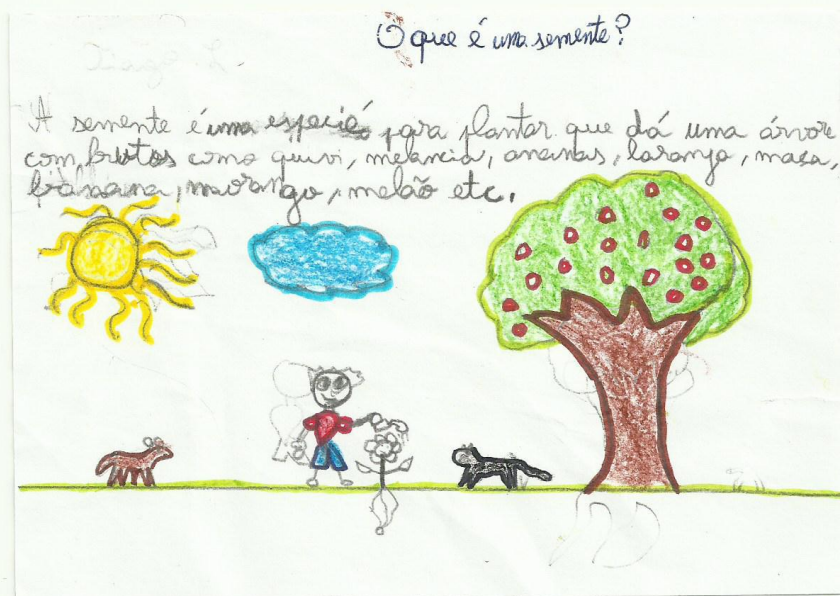 O que é uma semente?
A semente é uma especie para plantar que dá uma árvore
com frutos como quivi, melancia, ananas, laranja, maça,
banana, morango, melão etc.